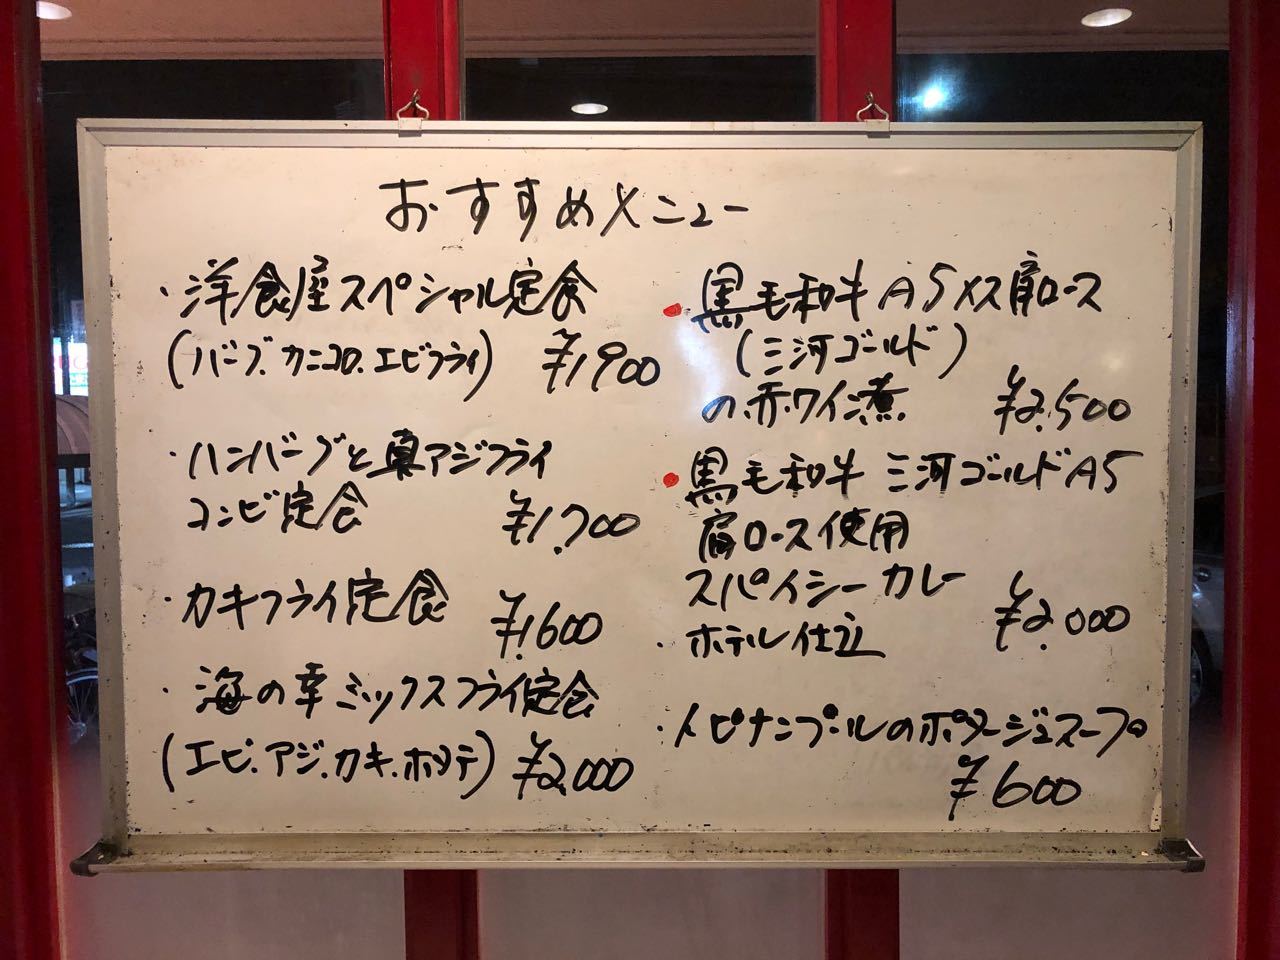 おすすめメニュー
・洋食屋スペシャル定食
(バーグ.カニコロ.エビフライ) ¥1900
・ハンバーグと真アジフライ
コンビ定食 ¥1,700
・カキフライ定食 ¥1,600
・海の幸ミックスフライ定食
(エビ.アジ.カキ.ホタテ) ¥2,000
・黒毛和牛A5メス肩ロース
(三河ゴールド)
の赤ワイン煮 ¥2,500
・黒毛和牛 三河ゴールドA5
肩ロース使用
スパイシーカレー
・ホテル仕立 ¥2,000
・トピナンブールのポタージュスープ
¥600